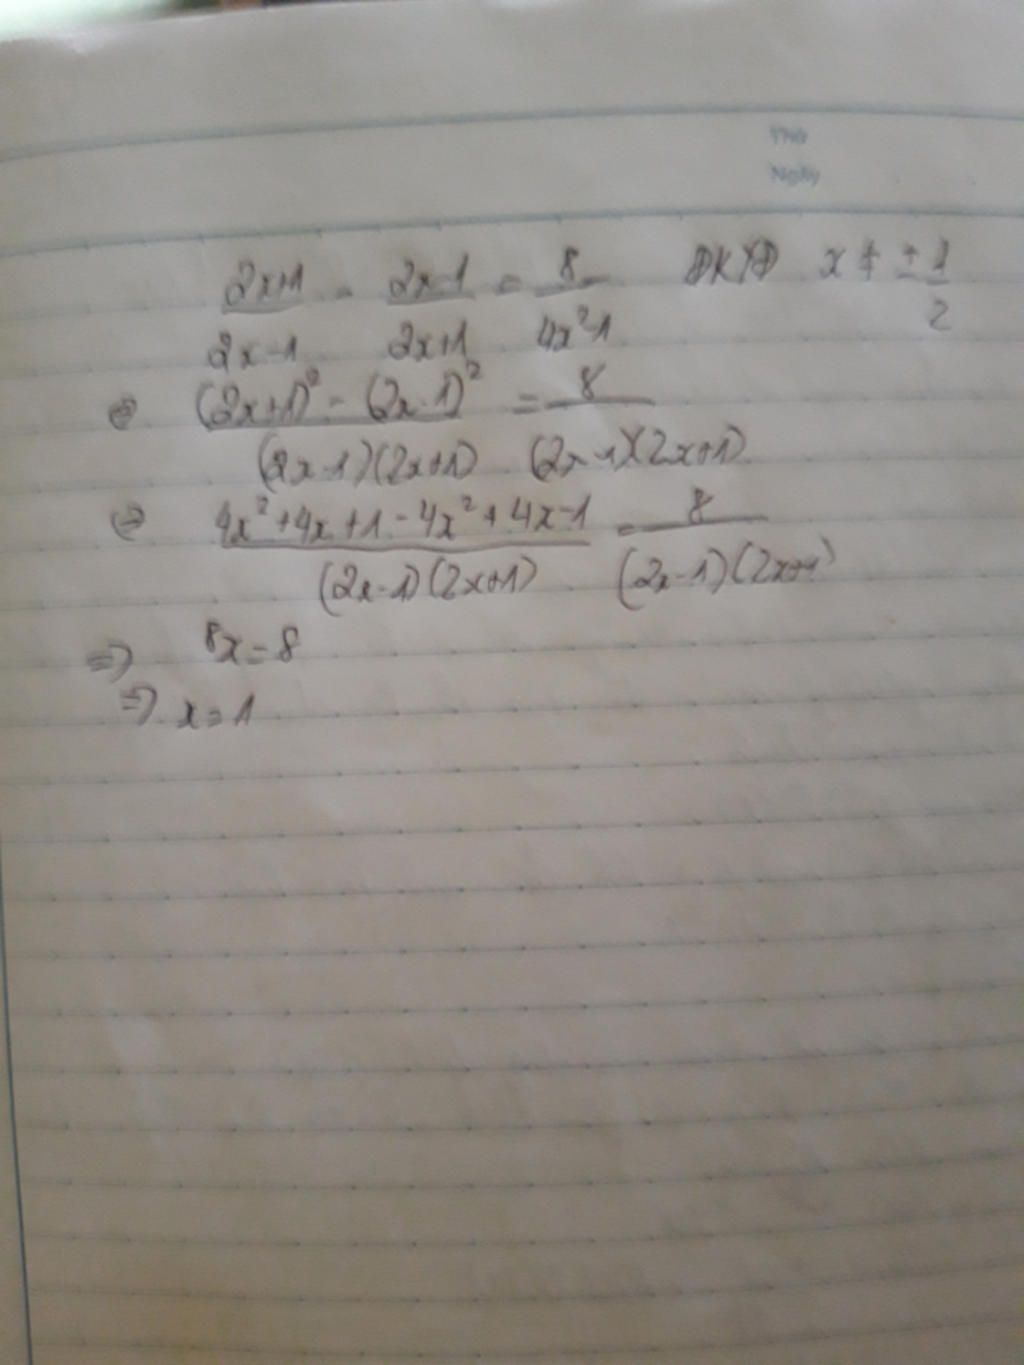 Thứ
Ngày
2x+1/2x-1 - 2x-1/2x+1 = 8/4x²-1 ĐKXĐ x ≠ ± 1/2
⇔ (2x+1)² - (2x-1)²/(2x-1)(2x+1) = 8/(2x-1)(2x+1)
⇔ 4x²+4x+1-4x²+4x-1/(2x-1)(2x+1) = 8/(2x-1)(2x+1)
⇒ 8x=8
⇒ x=1